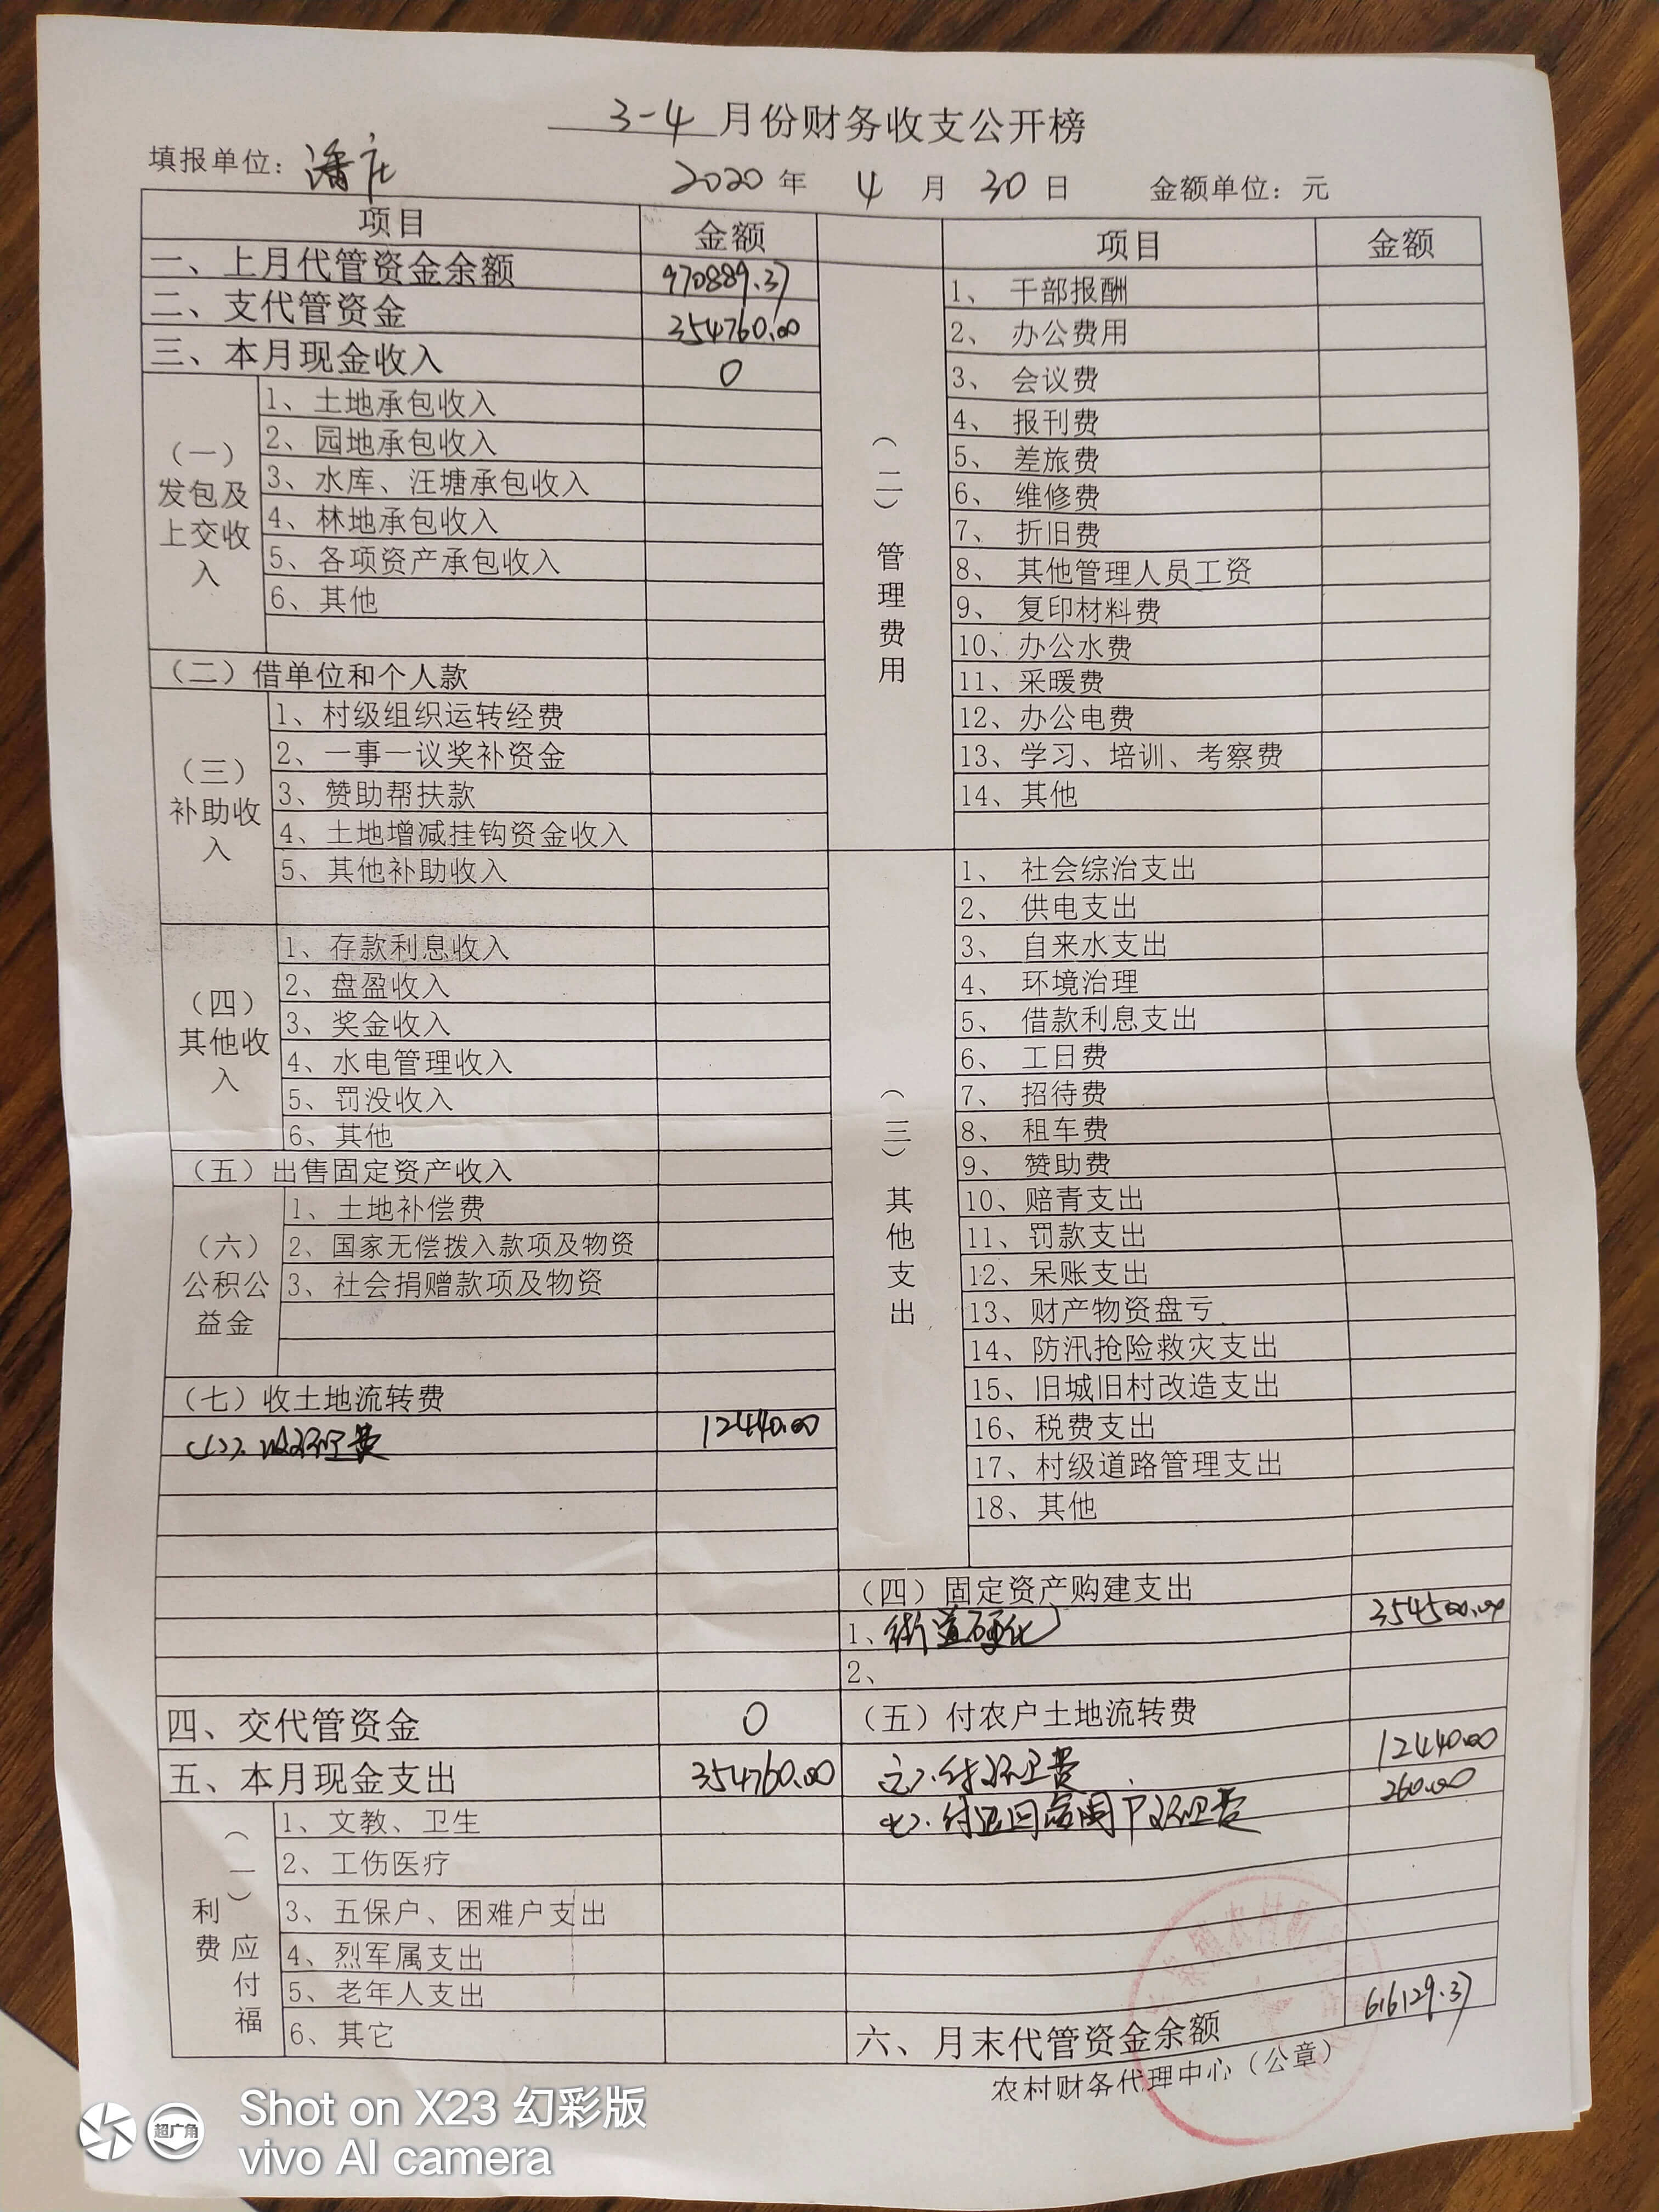 3-4 月份财务收支公开榜
填报单位：潘庄 2020 年 4 月 30 日 金额单位：元
项目 金额
一、上月代管资金余额 970889.37
二、支代管资金 354760.00
三、本月现金收入 0
（一）发包及上交收入
1、土地承包收入
2、园地承包收入
3、水库、汪塘承包收入
4、林地承包收入
5、各项资产承包收入
6、其他
（二）借单位和个人款
（三）补助收入
1、村级组织运转经费
2、一事一议奖补资金
3、赞助帮扶款
4、土地增减挂钩资金收入
5、其他补助收入
（四）其他收入
1、存款利息收入
2、盘盈收入
3、奖金收入
4、水电管理收入
5、罚没收入
6、其他
（五）出售固定资产收入
（六）公积公益金
1、土地补偿费
2、国家无偿拨入款项及物资
3、社会捐赠款项及物资
（七）收土地流转费
（八）、收环卫费 12440.00
四、交代管资金 0
五、本月现金支出 354760.00
（一）应付福利费
1、文教、卫生
2、工伤医疗
3、五保户、困难户支出
4、烈军属支出
5、老年人支出
6、其它
项目 金额
（二）管理费用
1、干部报酬
2、办公费用
3、会议费
4、报刊费
5、差旅费
6、维修费
7、折旧费
8、其他管理人员工资
9、复印材料费
10、办公水费
11、采暖费
12、办公电费
13、学习、培训、考察费
14、其他
（三）其他支出
1、社会综治支出
2、供电支出
3、自来水支出
4、环境治理
5、借款利息支出
6、工日费
7、招待费
8、租车费
9、赞助费
10、赔青支出
11、罚款支出
12、呆账支出
13、财产物资盘亏
14、防汛抢险救灾支出
15、旧城旧村改造支出
16、税费支出
17、村级道路管理支出
18、其他
（四）固定资产购建支出
1、街道硬化 354500.00
2、
（五）付农户土地流转费
六）、付环卫费 12440.00
七）、付退回 户环卫费 260.00
六、月末代管资金余额 616129.37
农村财务代理中心（公章）
Shot on X23 幻彩版
超广角
vivo AI camera